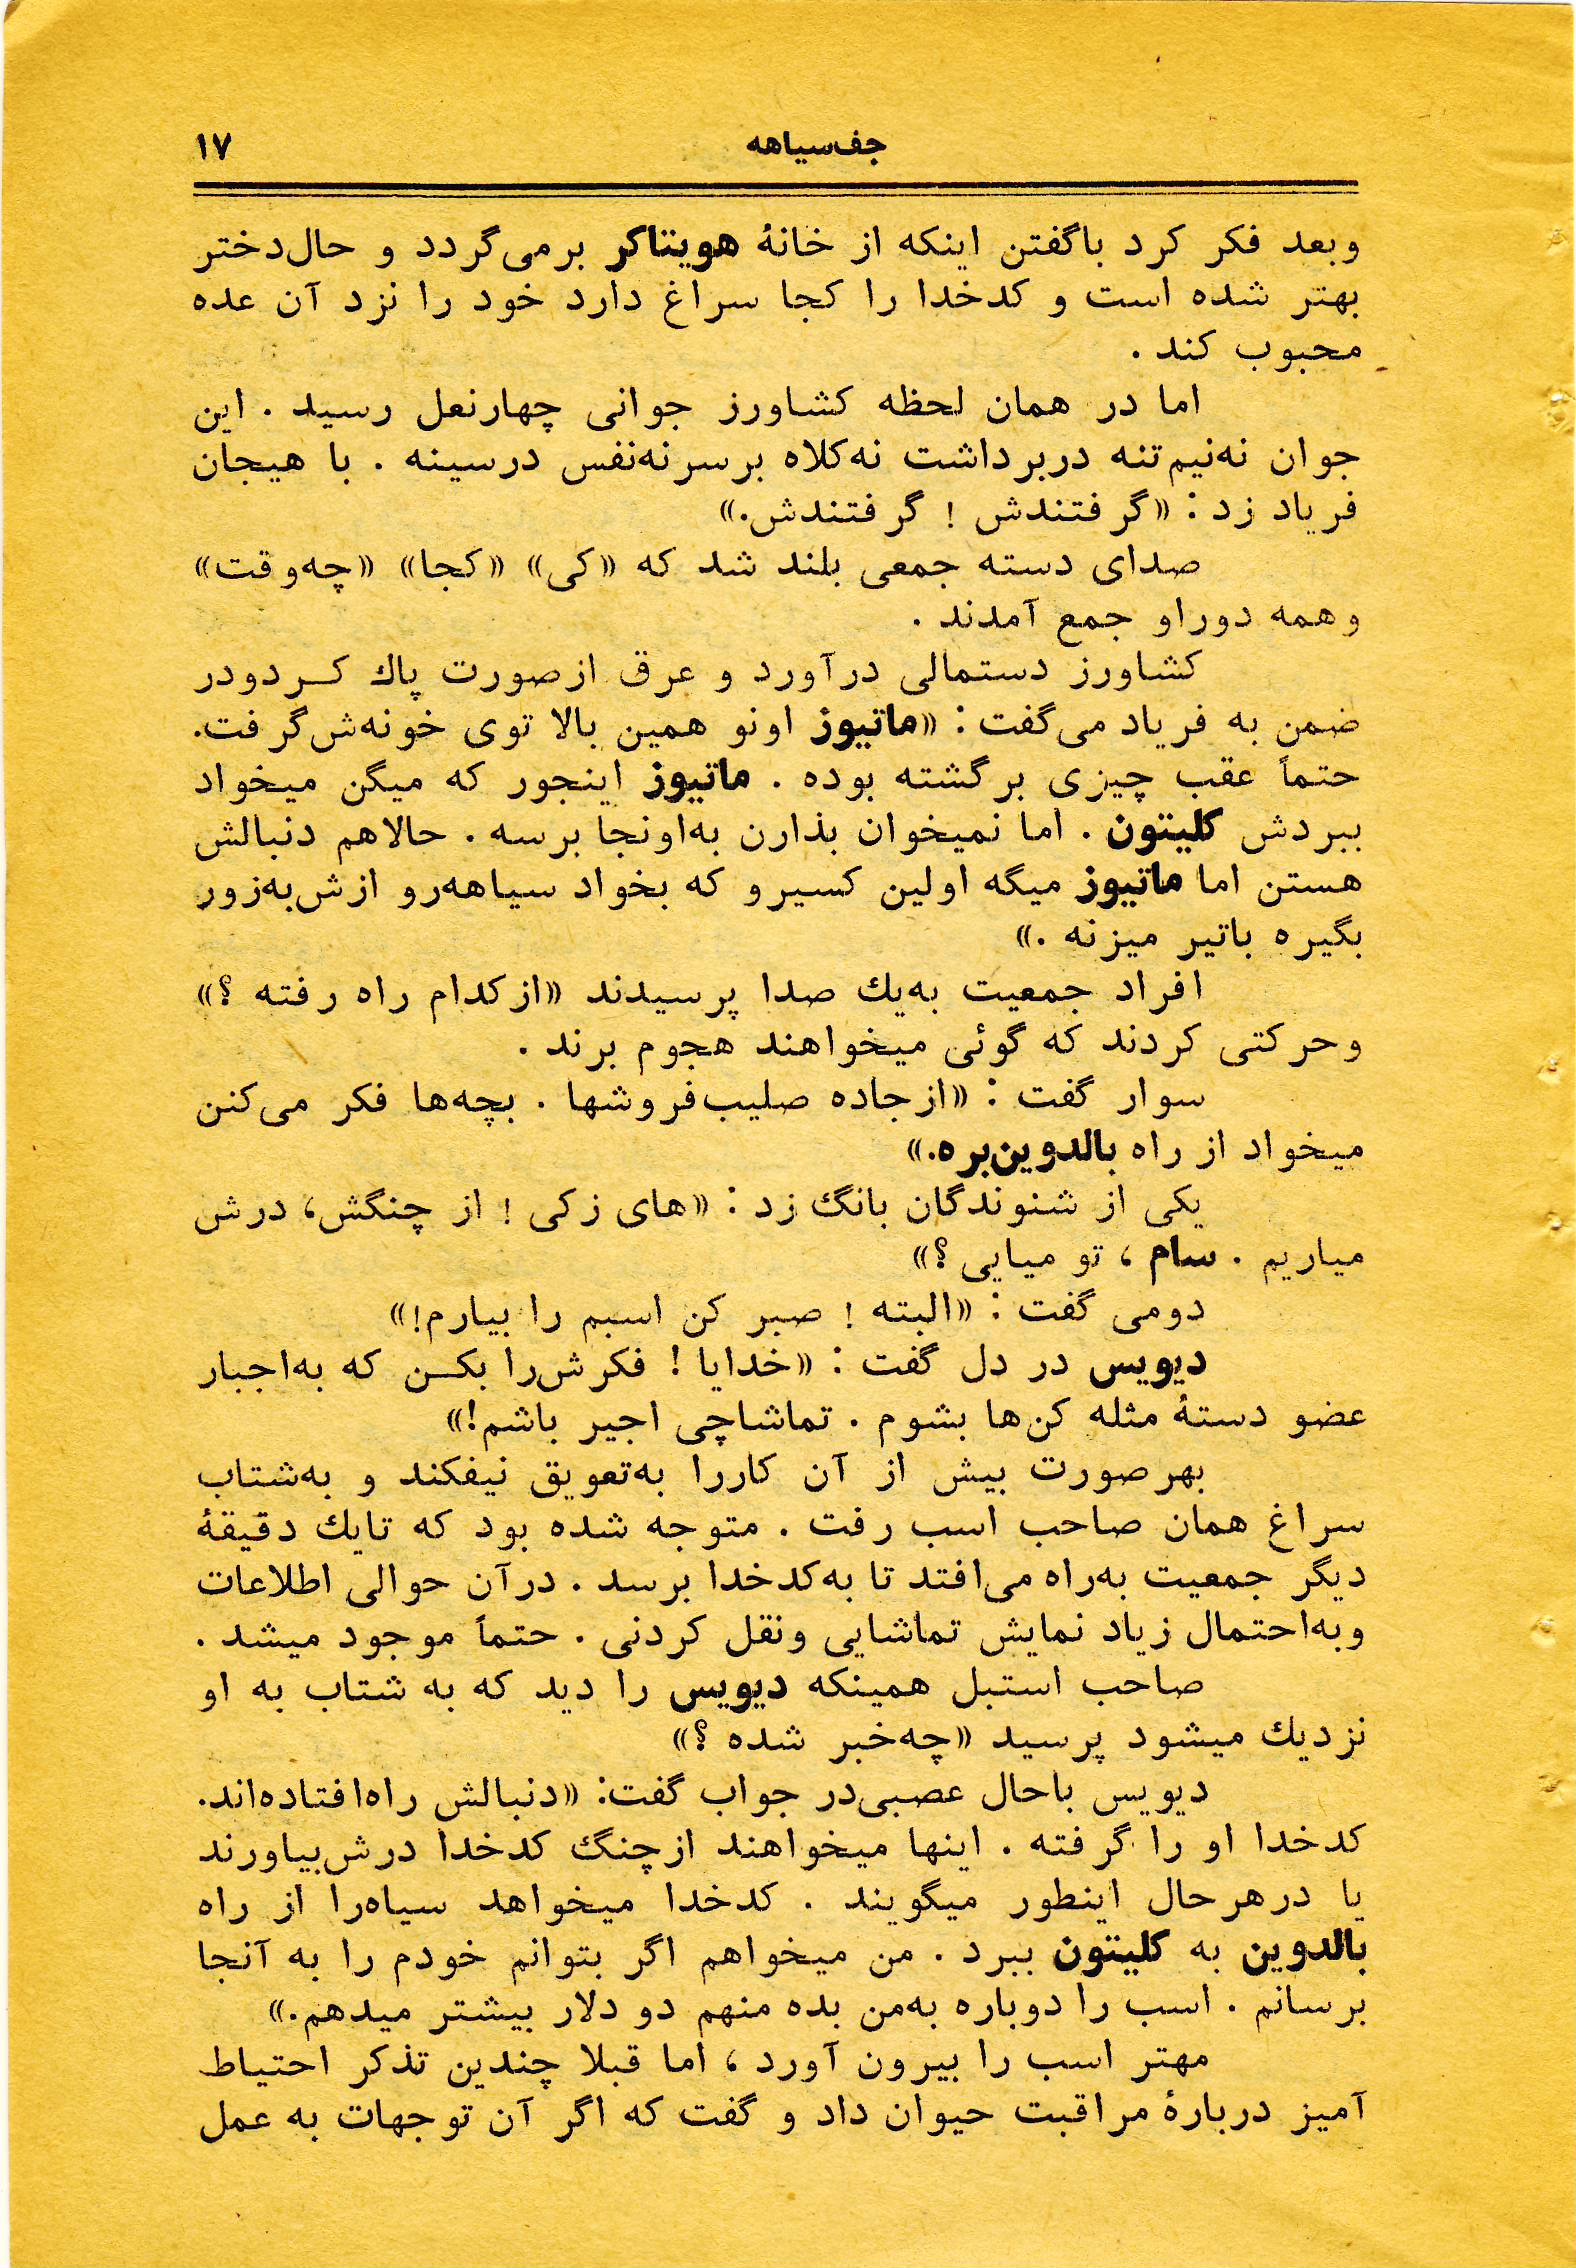 جف‌سیاهه ۱۷
وبعد فکر کرد باگفتن اینکه از خانهٔ هویتاکر برمی‌گردد و حال‌دختر
بهتر شده است و کدخدا را کجا سراغ دارد خود را نزد آن عده
محبوب کند .
اما در همان لحظه کشاورز جوانی چهارنعل رسید . این
جوان نه‌نیم‌تنه دربرداشت نه‌کلاه برسرنه‌نفس درسینه . با هیجان
فریاد زد : «گرفتندش ! گرفتندش.»
صدای دسته جمعی بلند شد که «کی» «کجا» «چه‌وقت»
وهمه دوراو جمع آمدند .
کشاورز دستمالی درآورد و عرق ازصورت پاك کـــردودر
ضمن به فریاد می‌گفت : «ماتیوز اونو همین بالا توی خونه‌ش‌گرفت.
حتماً عقب چیزی برگشته بوده . ماتیوز اینجور که میگن میخواد
ببردش کلیتون . اما نمیخوان بذارن به‌اونجا برسه . حالاهم دنبالش
هستن اما ماتیوز میگه اولین کسیرو که بخواد سیاهه‌رو ازش‌به‌زور
بگیره باتیر میزنه .»
افراد جمعیت به‌یك صدا پرسیدند «ازکدام راه رفته ؟»
وحرکتی کردند که گوئی میخواهند هجوم برند .
سوار گفت : «ازجاده صلیب‌فروشها . بچه‌ها فکر می‌کنن
میخواد از راه بالدوین‌بره.»
یکی از شنوندگان بانگ زد : «های زکی ! از چنگش، درش
میاریم . سام ، تو میایی ؟»
دومی گفت : «البته ! صبر کن اسبم را بیارم!»
دیویس در دل گفت : «خدایا ! فکرش‌را بکـــن که به‌اجبار
عضو دستهٔ مثله کن‌ها بشوم . تماشاچی اجیر باشم!»
بهرصورت بیش از آن کاررا به‌تعویق نیفکند و به‌شتاب
سراغ همان صاحب اسب رفت . متوجه شده بود که تایك دقیقهٔ
دیگر جمعیت به‌راه می‌افتد تا به‌کدخدا برسد . درآن حوالی اطلاعات
وبه‌احتمال زیاد نمایش تماشایی ونقل کردنی . حتماً موجود میشد .
صاحب استبل همینکه دیویس را دید که به شتاب به او
نزدیك میشود پرسید «چه‌خبر شده ؟»
دیویس باحال عصبی‌در جواب گفت: «دنبالش راه‌افتاده‌اند.
کدخدا او را گرفته . اینها میخواهند ازچنگ کدخدا درش‌بیاورند
یا درهرحال اینطور میگویند . کدخدا میخواهد سیاه‌را از راه
بالدوین به کلیتون ببرد . من میخواهم اگر بتوانم خودم را به آنجا
برسانم . اسب را دوباره به‌من بده منهم دو دلار بیشتر میدهم.»
مهتر اسب را بیرون آورد ، اما قبلا چندین تذکر احتیاط
آمیز دربارهٔ مراقبت حیوان داد و گفت که اگر آن توجهات به عمل